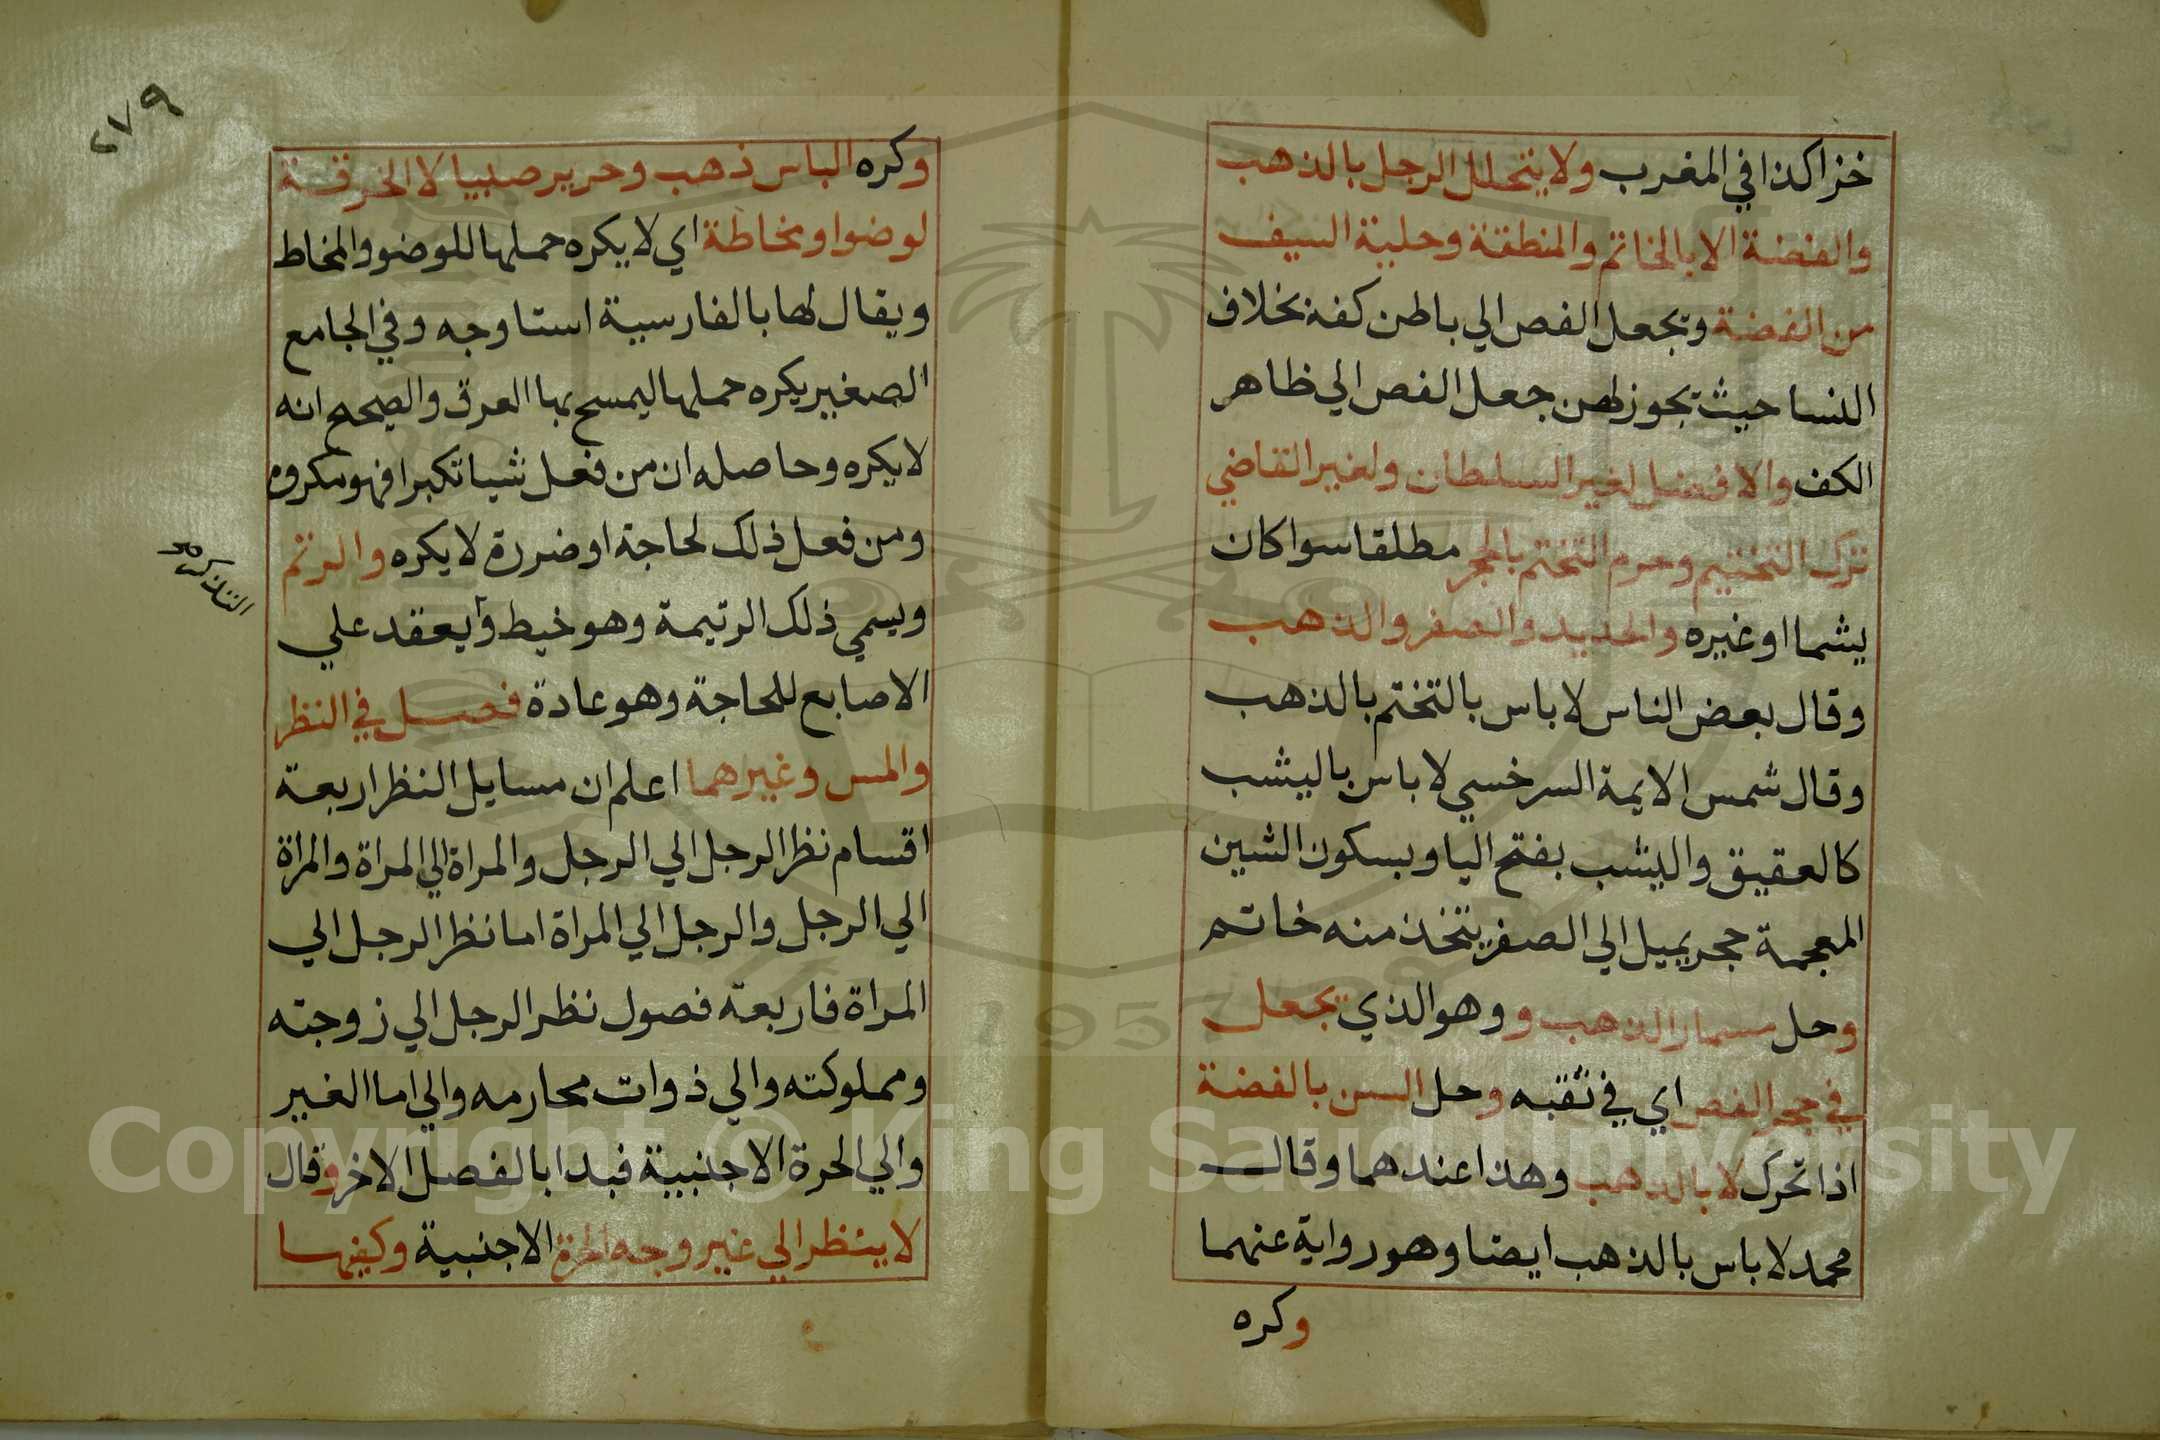 خزا كذا في المغرب ولا يتحلل الرجل بالذهب
والفضة الا بالخاتم والمنطقة وحلية السيف
من الفضة ويجعل الفص الي باطن كفه بخلاف
النسا حيث يجوز لهن جعل الفص الي ظاهر
الكف والافضل لغير السلطان ولغير القاضي
ترك التختيم وحرم التختم بالحجر مطلقا سوا كان
يشما او غيره والحديد والصفر والذهب
وقال بعض الناس لا باس بالتختم بالذهب
وقال شمس الايمة السرخسي لا باس باليشب
كالعقيق واليشب بفتح اليا وبسكون الشين
المعجمة حجر يميل الي الصفر يتخذ منه خاتم
وحل مسمار الذهب و وهو الذي يجعل
في حجر الفص اي في ثقبه وحل السن بالفضة
اذا تحرك لا بالذهب وهذا عندهما وقال
محمد لا باس بالذهب ايضا وهو رواية عنهما
وكره
٢٧٩
وكره الباس ذهب وحرير صبيا لا الخرقة
لوضوا ومخاطة اي لا يكره حملها للوضو والمخاط
ويقال لها بالفارسية استاوجه وفي الجامع
الصغير يكره حملها ليمسح بها العرق والصحح انه
لا يكره وحاصله ان من فعل شيا تكبرا فهو مكروه
ومن فعل ذلك لحاجة او ضررة لا يكره والرتم
ويسمي ذلك الرتيمة وهو خيط وأيعقد علي
الاصابع للحاجة وهو عادة فصل في النظر
والمس وغيرهما اعلم ان مسايل النظر اربعة
اقسام نظر الرجل الي الرجل والمراة الي المراة والمراة
الي الرجل والرجل الي المراة اما نظر الرجل الي
المراة فاربعة فصول نظر الرجل الي زوجته
ومملوكته والي ذوات محارمه والي اما الغير
والي الحرة الاجنبية فبدا بالفصل الاخر وقال
لا ينظر الي غير وجه الحرة الاجنبية وكفيها
Copyright © King Saud University
1957